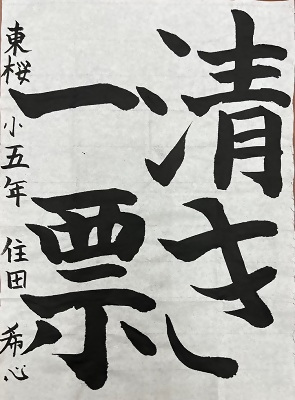 清き
一票
東桜小五年 住田希心